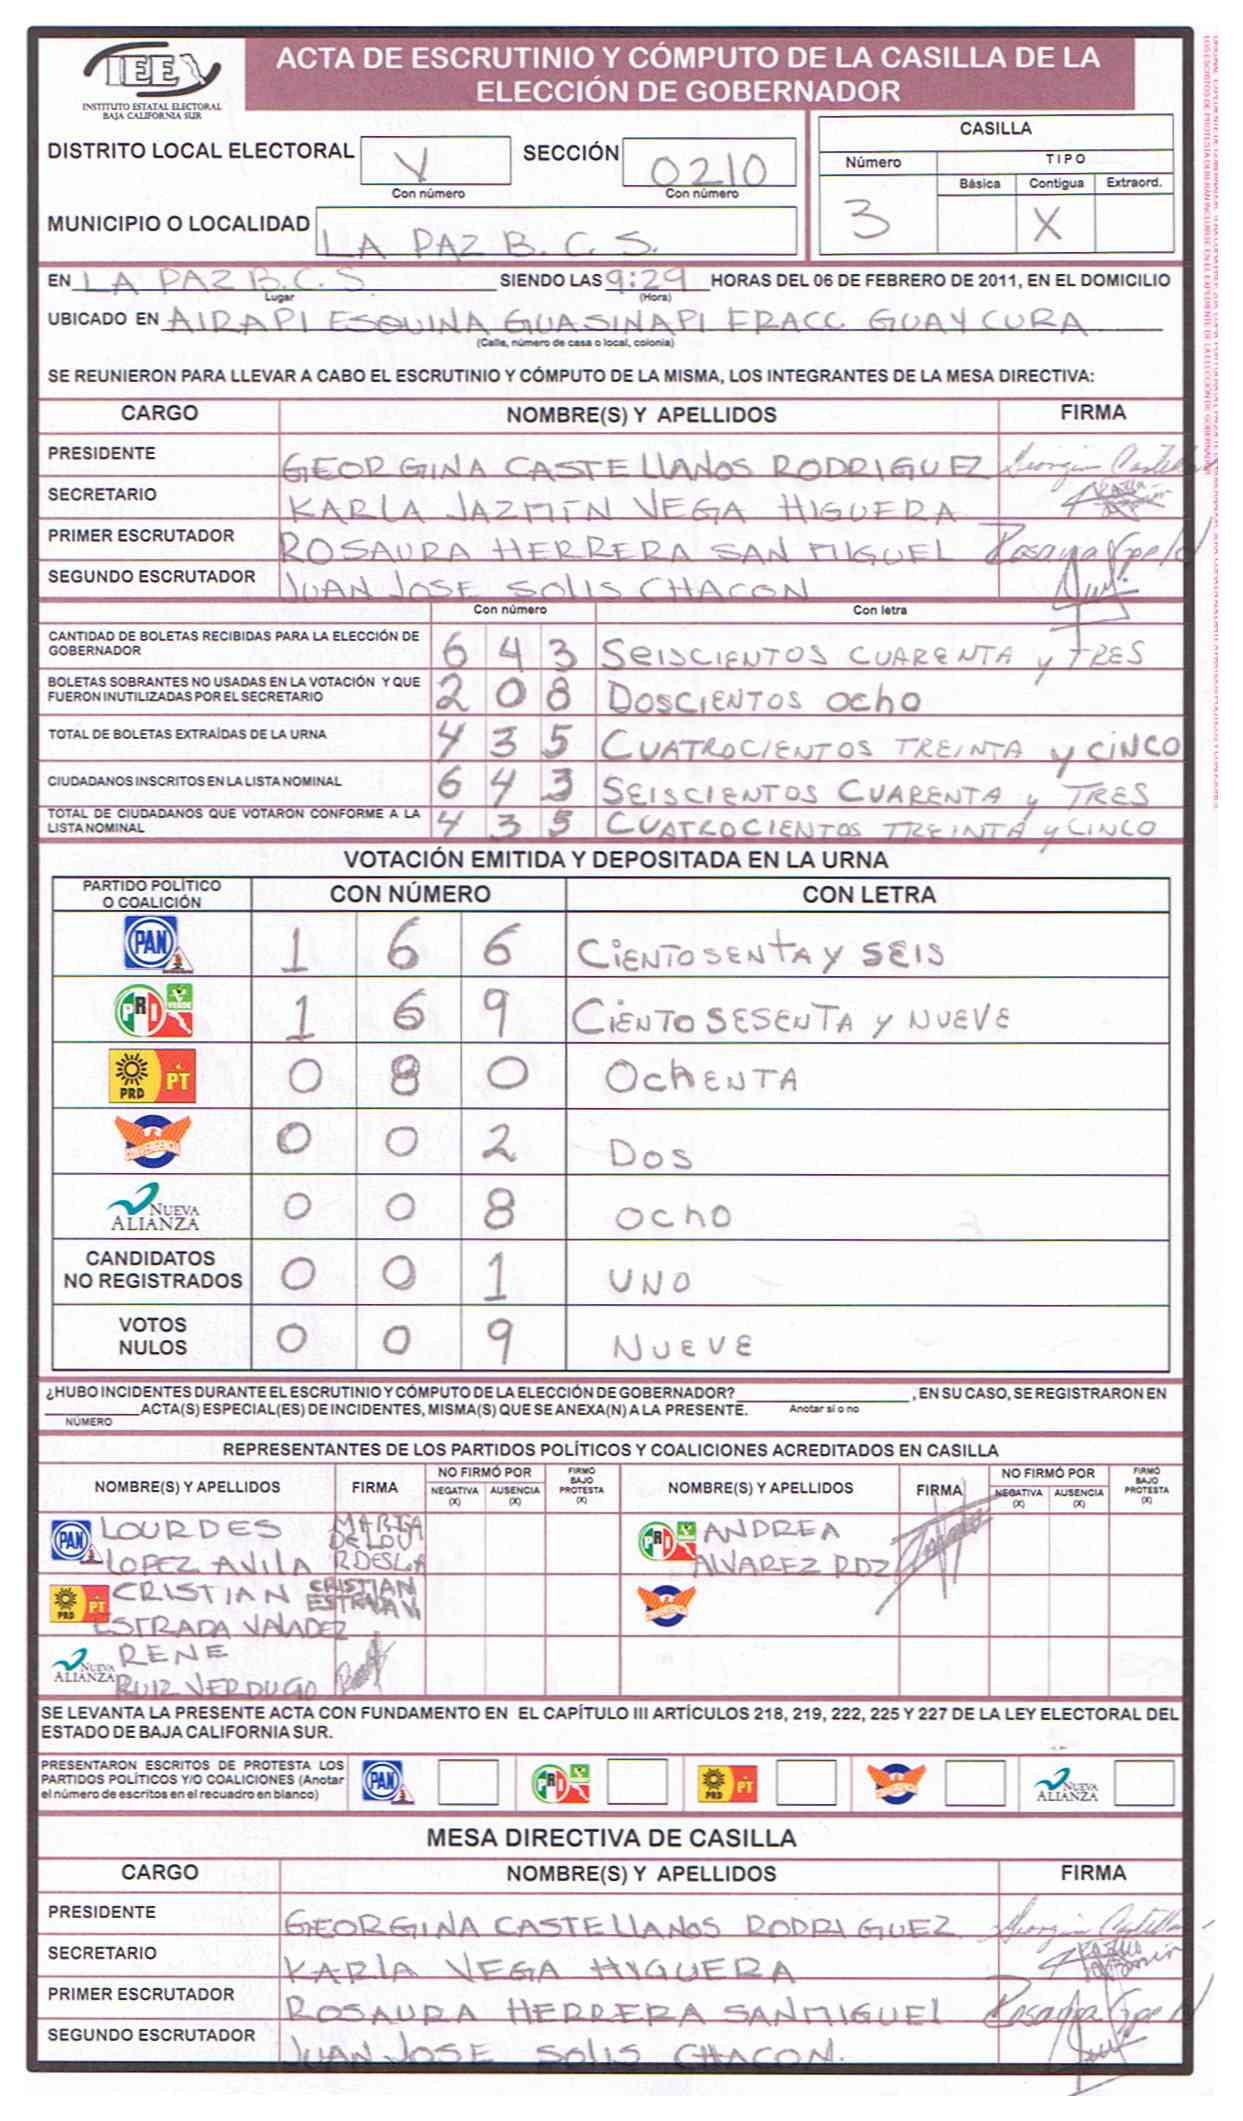 IEE
INSTITUTO ESTATAL ELECTORAL
BAJA CALIFORNIA SUR
ACTA DE ESCRUTINIO Y CÓMPUTO DE LA CASILLA DE LA
ELECCIÓN DE GOBERNADOR
DISTRITO LOCAL ELECTORAL V SECCIÓN 0210
Con número Con número
MUNICIPIO O LOCALIDAD LA PAZ B.C.S.
CASILLA
Número TIPO
Básica Contigua Extraord.
3 X
EN LA PAZ B.C.S. SIENDO LAS 9:29 HORAS DEL 06 DE FEBRERO DE 2011, EN EL DOMICILIO
Lugar (Hora)
UBICADO EN AIRAPI ESQUINA GUASINAPI FRACC GUAYCURA
(Calle, número de casa o local, colonia)
SE REUNIERON PARA LLEVAR A CABO EL ESCRUTINIO Y CÓMPUTO DE LA MISMA, LOS INTEGRANTES DE LA MESA DIRECTIVA:
CARGO NOMBRE(S) Y APELLIDOS FIRMA
PRESIDENTE GEORGINA CASTELLANOS RODRIGUEZ
SECRETARIO KARLA JAZMIN VEGA HIGUERA
PRIMER ESCRUTADOR ROSAURA HERRERA SAN MIGUEL
SEGUNDO ESCRUTADOR JUAN JOSE SOLIS CHACON
Con número Con letra
CANTIDAD DE BOLETAS RECIBIDAS PARA LA ELECCIÓN DE
GOBERNADOR 6 4 3 SEISCIENTOS CUARENTA y TRES
BOLETAS SOBRANTES NO USADAS EN LA VOTACIÓN Y QUE
FUERON INUTILIZADAS POR EL SECRETARIO 2 0 8 DOSCIENTOS OCHO
TOTAL DE BOLETAS EXTRAÍDAS DE LA URNA 4 3 5 CUATROCIENTOS TREINTA y CINCO
CIUDADANOS INSCRITOS EN LA LISTA NOMINAL 6 4 3 SEISCIENTOS CUARENTA y TRES
TOTAL DE CIUDADANOS QUE VOTARON CONFORME A LA
LISTA NOMINAL 4 3 5 CUATROCIENTOS TREINTA y CINCO
VOTACIÓN EMITIDA Y DEPOSITADA EN LA URNA
PARTIDO POLÍTICO
O COALICIÓN CON NÚMERO CON LETRA
PAN 1 6 6 CIENTOSENTA Y SEIS
PRI VERDE 1 6 9 CIENTO SESENTA y NUEVE
PRD PT 0 8 0 OCHENTA
CONVERGENCIA 0 0 2 DOS
NUEVA ALIANZA 0 0 8 OCHO
CANDIDATOS
NO REGISTRADOS 0 0 1 UNO
VOTOS
NULOS 0 0 9 NUEVE
¿HUBO INCIDENTES DURANTE EL ESCRUTINIO Y CÓMPUTO DE LA ELECCIÓN DE GOBERNADOR? , EN SU CASO, SE REGISTRARON EN
ACTA(S) ESPECIAL(ES) DE INCIDENTES, MISMA(S) QUE SE ANEXA(N) A LA PRESENTE. Anotar sí o no
NÚMERO
REPRESENTANTES DE LOS PARTIDOS POLÍTICOS Y COALICIONES ACREDITADOS EN CASILLA
NOMBRE(S) Y APELLIDOS FIRMA NO FIRMÓ POR NEGATIVA (X) AUSENCIA (X) FIRMÓ BAJO PROTESTA (X) NOMBRE(S) Y APELLIDOS FIRMA NO FIRMÓ POR NEGATIVA (X) AUSENCIA (X) FIRMÓ BAJO PROTESTA (X)
PAN LOURDES
LOPEZ AVILA
PRI VERDE ANDREA
ALVAREZ RDZ
PRD PT CRISTIAN CRISTIAN
ESTRADA VALADEZ ESTRADA V
CONVERGENCIA
NUEVA ALIANZA RENE
RUIZ VERDUGO
SE LEVANTA LA PRESENTE ACTA CON FUNDAMENTO EN EL CAPÍTULO III ARTÍCULOS 218, 219, 222, 225 Y 227 DE LA LEY ELECTORAL DEL
ESTADO DE BAJA CALIFORNIA SUR.
PRESENTARON ESCRITOS DE PROTESTA LOS
PARTIDOS POLÍTICOS Y/O COALICIONES (Anotar
el número de escritos en el recuadro en blanco)
PAN PRI VERDE PRD PT CONVERGENCIA NUEVA ALIANZA
MESA DIRECTIVA DE CASILLA
CARGO NOMBRE(S) Y APELLIDOS FIRMA
PRESIDENTE GEORGINA CASTELLANOS RODRIGUEZ
SECRETARIO KARLA VEGA HIGUERA
PRIMER ESCRUTADOR ROSAURA HERRERA SANMIGUEL
SEGUNDO ESCRUTADOR JUAN JOSE SOLIS CHACON.